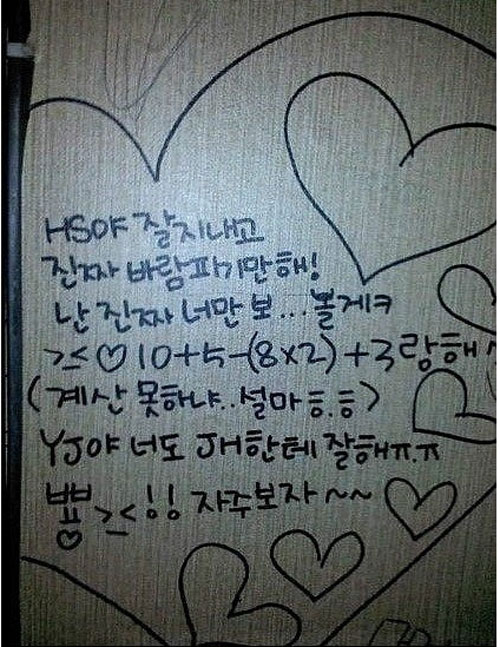 HS야 잘지내고
진짜 바람피기만해!
난 진짜 너만 보...볼게ㅋ
>_<♡10+5-(8x2)+3랑해~
(계산 못하냐..설마ㅎ.ㅎ)
YJ야 너도 JH한테 잘해ㅠ.ㅠ
뾰뵹♡ >_<!! 자주보자~~